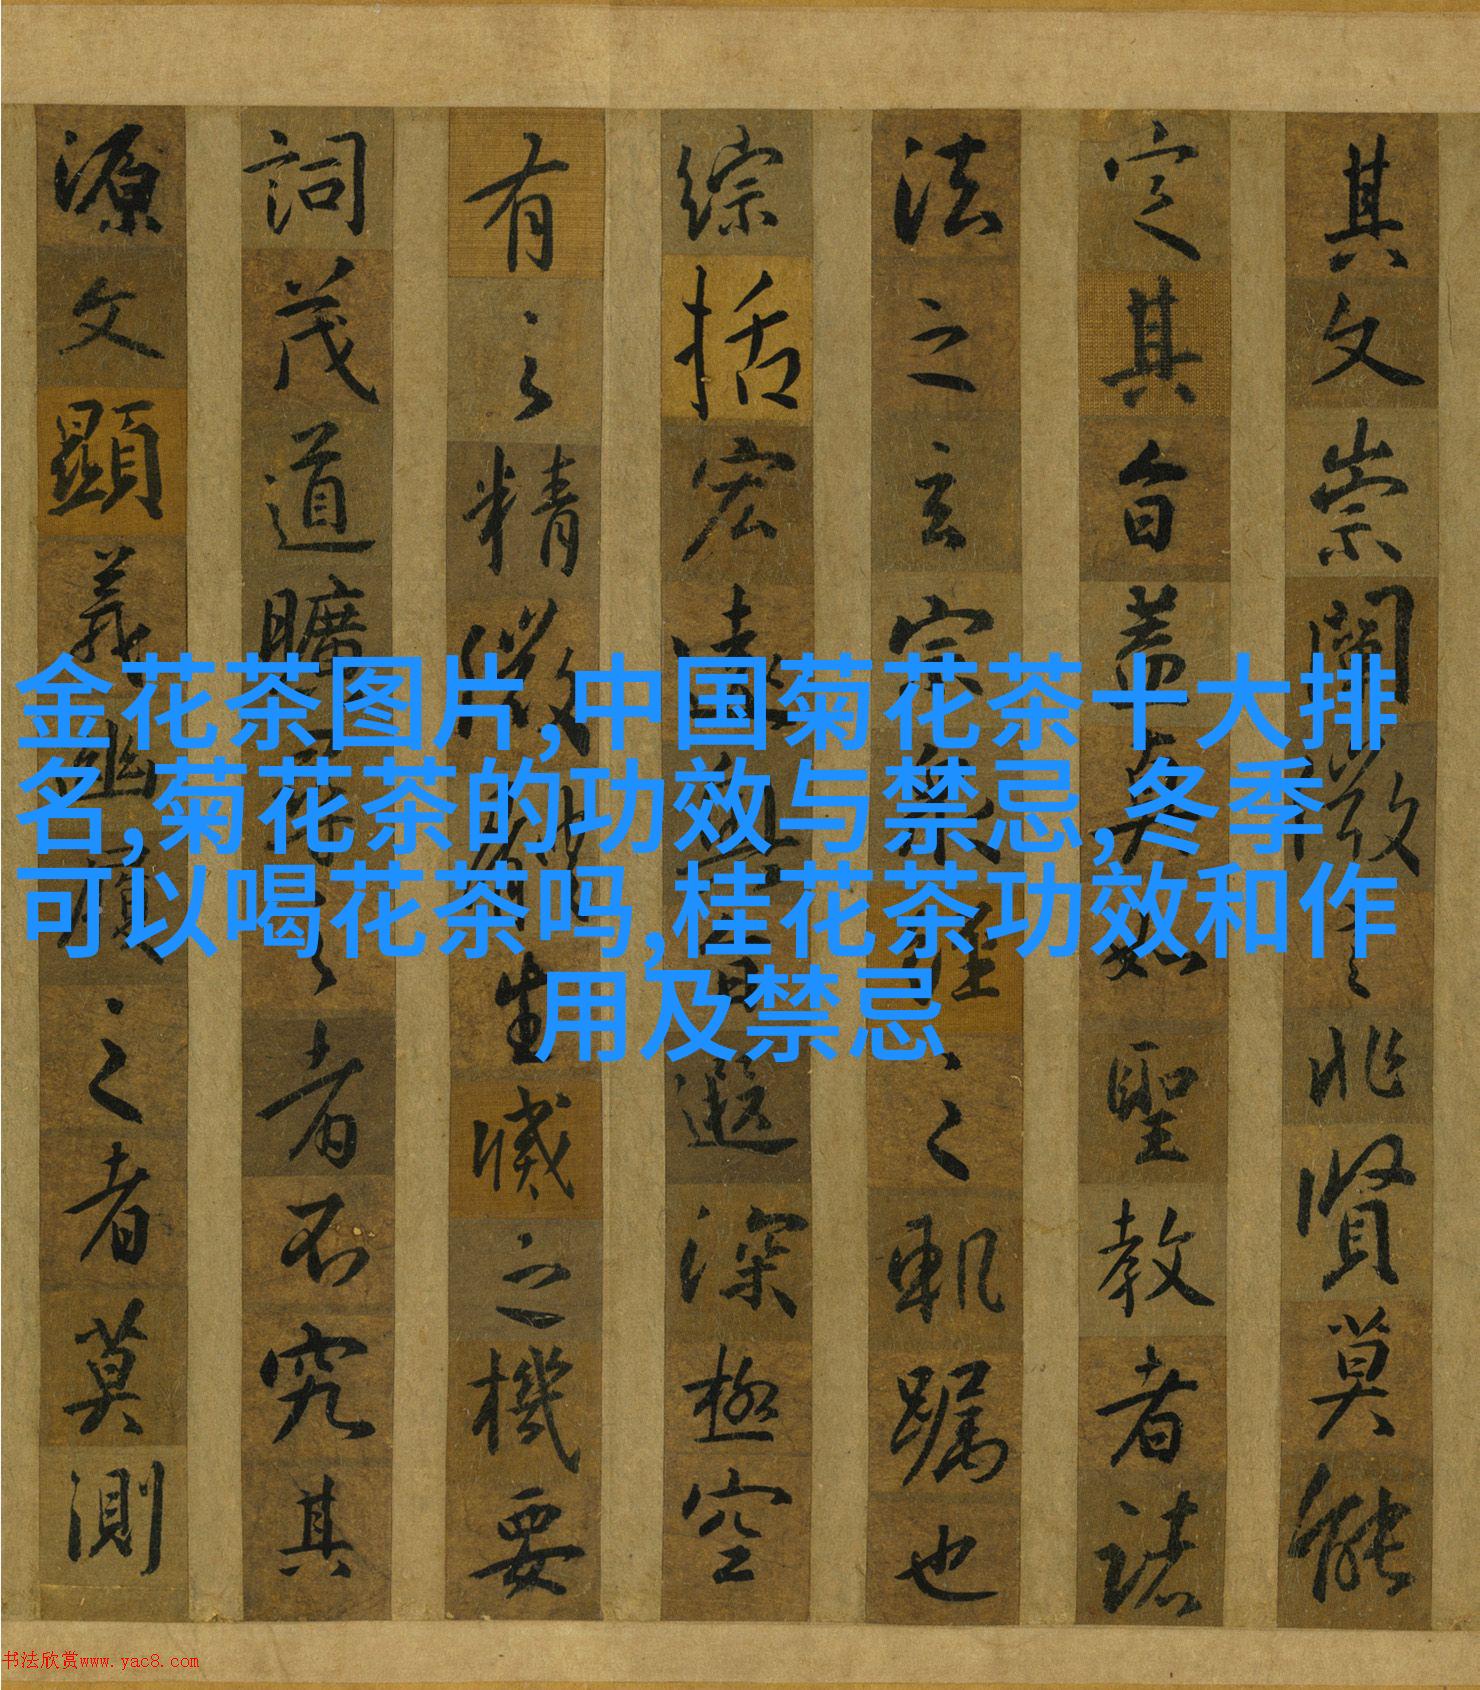 其文崇闡微言非賢莫能
定其旨蓋真如聖教者諸
法之玄宗衆經之軌躅也
綜括宏遠奧旨遐深極空
有之精微體生滅之機要
詞茂道曠尋之者不究其
源文顯義幽履之者莫測
金花茶图片,中国菊花茶十大排
名,菊花茶的功效与禁忌,冬季
可以喝花茶吗,桂花茶功效和作
用及禁忌
书法欣赏www.yac8.com